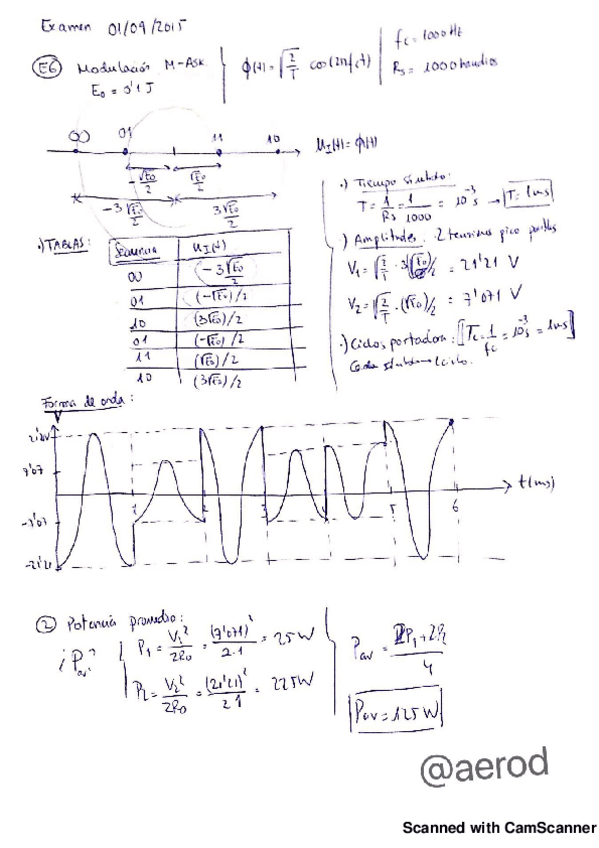 Examen 01/09/2015
E6 Modulación M-ASK
E₀ = 0'1 J
ϕ(t) = √(2/T) cos(2πfct)
fc = 1000 Hz
Rs = 1000 baudios
00 01 11 10
U_I(t) = ϕ(t)
-√E₀/2 √E₀/2
-3√E₀/2 3√E₀/2
·) TABLAS:
Secuencia U_I(t)
00 -3√E₀/2
01 (-√E₀)/2
10 (3√E₀)/2
01 (-√E₀)/2
11 (√E₀)/2
10 (3√E₀)/2
·) Tiempo símbolo:
T = 1/Rs = 1/1000 = 10⁻³ s → T = 1ms
·) Amplitudes: 2 tensiones pico
V₁ = √(2/T) · 3(√E₀)/2 = 21'21 V
V₂ = √(2/T) · (√E₀)/2 = 7'071 V
·) Ciclos portadora: [Tc = 1/fc = 10⁻³ s = 1ms]
Cada símbolo → 1 ciclo.
Forma de onda:
21'21
7'07
-7'07
-21'21
1 2 3 4 5 6 t(ms)
② Potencia promedio:
¿Pav?
P₁ = V₁²/2R₀ = (7'071)²/2·1 = 25W
P₂ = V₂²/2R₀ = (21'21)²/2·1 = 225W
Pav = 2P₁+2P₂/4
Pav = 125 W
@aerod
Scanned with CamScanner